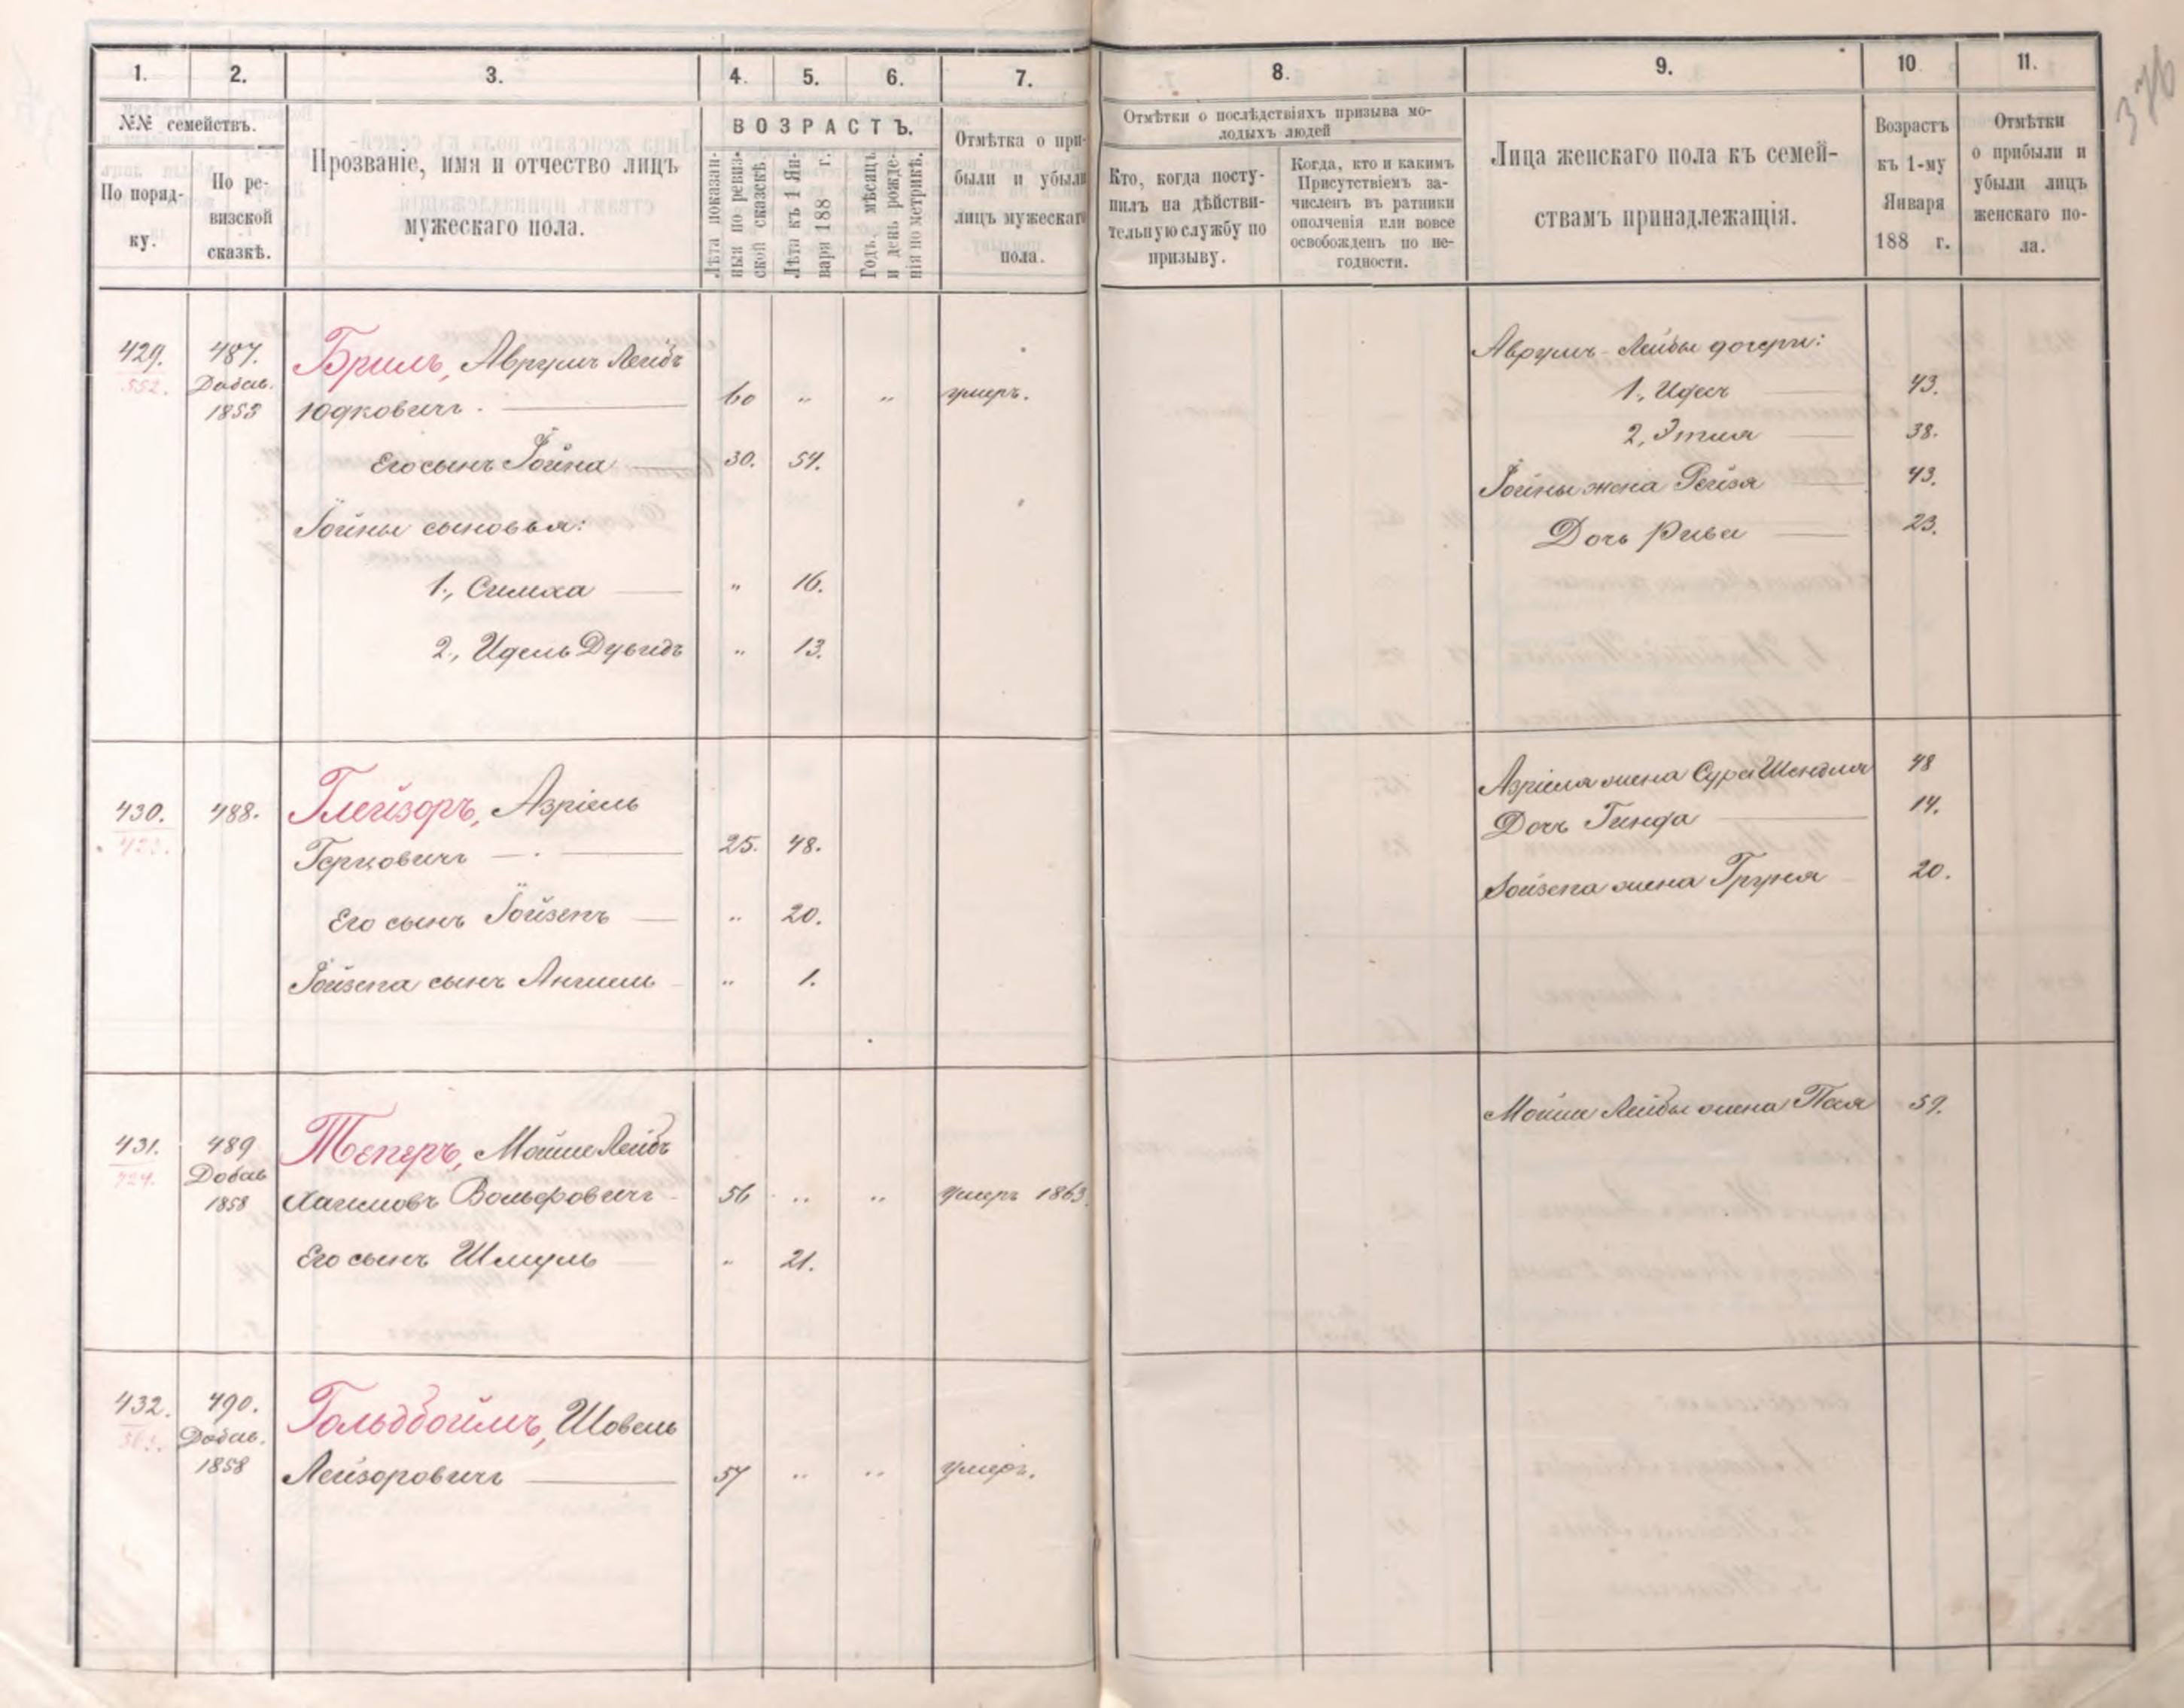 376
1. 2. 3. 4. 5. 6. 7. 8. 9. 10 11.
№№ семействъ.
По поряд-
ку.
По ре-
визской
сказкѣ.
Прозваніе, имя и отчество лицъ
мужескаго пола.
ВОЗРАСТЪ.
Лѣта показан-
ныя по ревиз-
ской сказкѣ.
Лѣта къ 1 Ян-
варя 188 г.
Годъ, мѣсяцъ
и день рожде-
нія по метрикѣ.
Отмѣтка о при-
были и убыли
лицъ мужескаго
пола.
Отмѣтки о послѣдствіяхъ призыва мо-
лодыхъ людей
Кто, когда посту-
пилъ на дѣйстви-
тельную службу по
призыву.
Когда, кто и какимъ
Присутствіемъ за-
численъ въ ратники
ополченія или вовсе
освобожденъ по не-
годности.
Лица женскаго пола къ семей-
ствамъ принадлежащія.
Возрастъ
къ 1-му
Января
188 г.
Отмѣтки
о прибыли и
убыли лицъ
женскаго по-
ла.
429. 487. Бриль, Аврумъ Лейбъ
552. Добав.
1853 Юдковичъ. 60 " " умеръ.
Его сынъ Іойна 30. 54.
Іойны сыновья:
1., Симха " 16.
2., Идель Дувидъ " 13.
Аврумъ-Лейбы дочери:
1., Идесъ 43.
2, Этля 38.
Іойны жена Рейзя 43.
Дочь Рива 23.
430. 488. Глейзоръ, Азріель
Герцовичъ 25. 48.
Его сынъ Іойзепъ " 20.
Іойзепа сынъ Аншель " 1.
Азріеля жена Сура Шендля 48
Дочь Гинда 14.
Іойзепа жена Груня 20.
431. 489 Теперъ, Мойше Лейбъ
424. Добав
1858 Хаимовъ Вольфовичъ 56 " " умеръ 1863
Его сынъ Шмуль " 21.
Мойше Лейбы жена Песя 59.
432. 490. Гольдбоймъ, Шовель
Добав.
1858 Лейзоровичъ 57 " " умеръ.